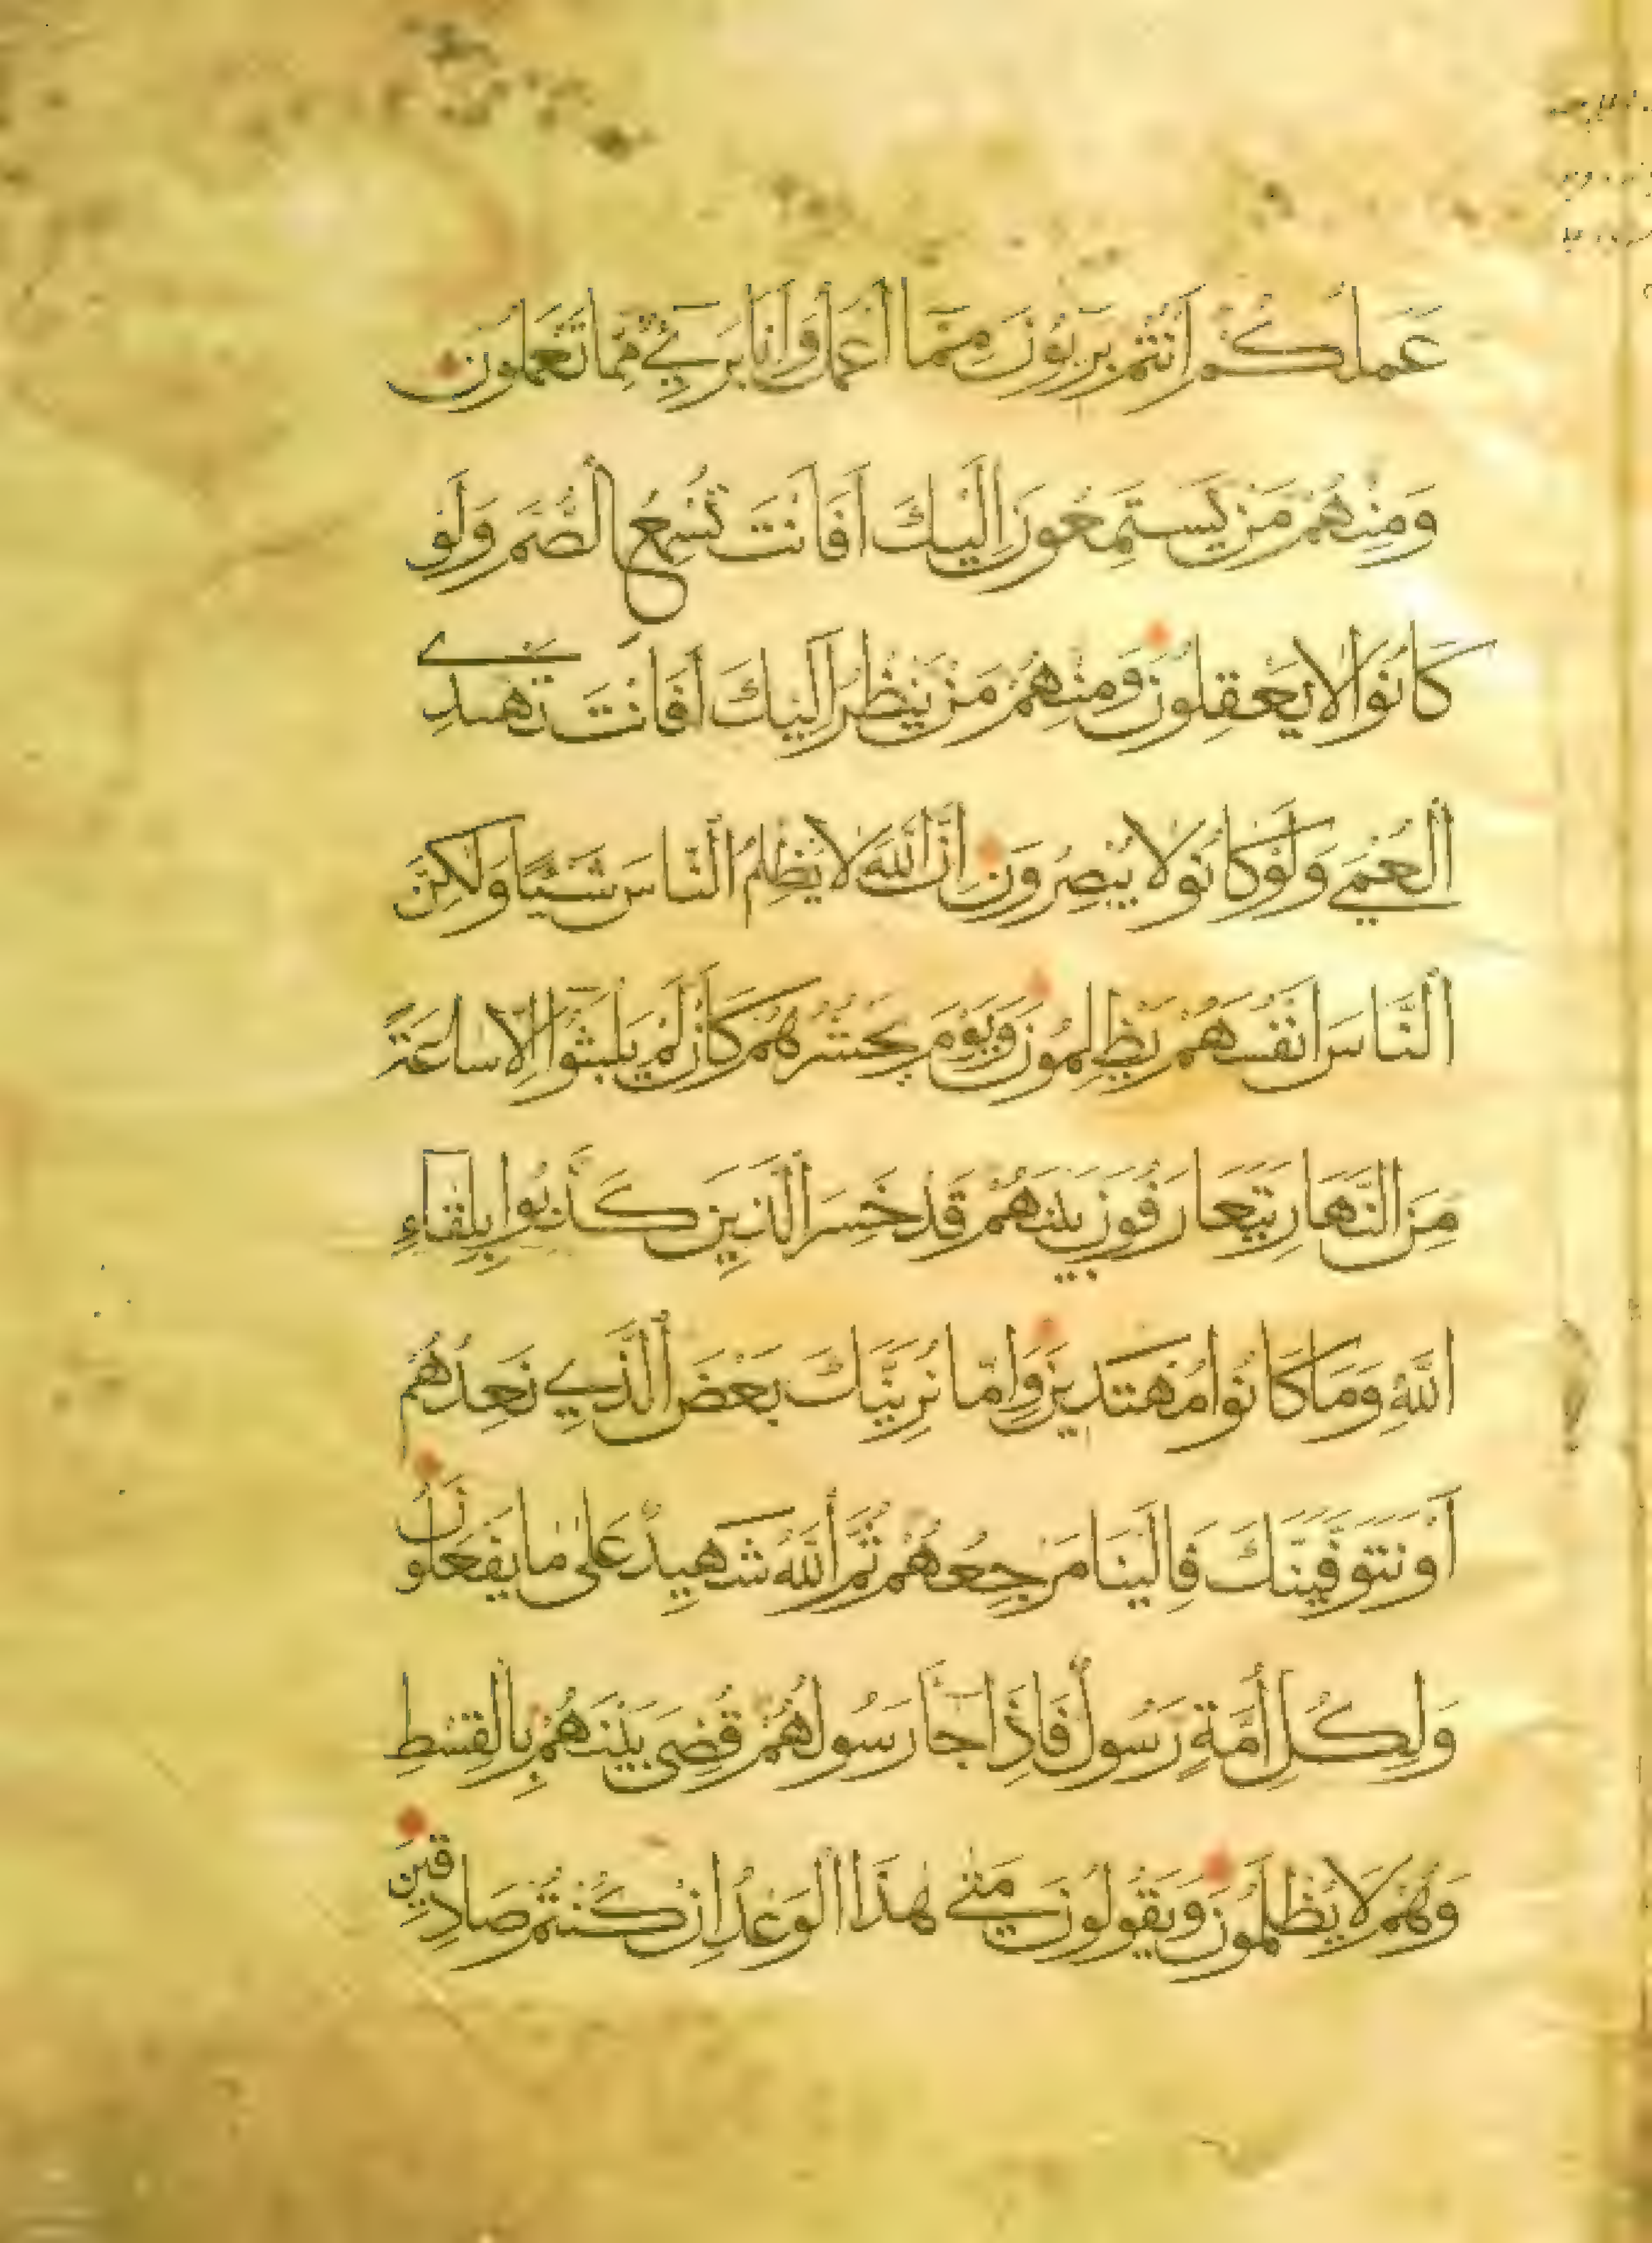 عَمَلُكُمْ اَنْتُمْ بَرِيؤُنَ مِمَّا اَعْمَلُ وَاَنَا بَرِئٌ مِمَّا تَعْمَلُونَ
وَمِنْهُمْ مَنْ يَسْتَمِعُونَ اِلَيْكَ اَفَاَنْتَ تُسْمِعُ الصُّمَّ وَلَوْ
كَانُوا لَا يَعْقِلُونَ وَمِنْهُمْ مَنْ يَنْظُرُ اِلَيْكَ اَفَاَنْتَ تَهْدِي
الْعُمْيَ وَلَوْ كَانُوا لَا يُبْصِرُونَ اِنَّ اللَّهَ لَا يَظْلِمُ النَّاسَ شَيْئًا وَلَكِنَّ
النَّاسَ اَنْفُسَهُمْ يَظْلِمُونَ وَيَوْمَ يَحْشُرُهُمْ كَاَنْ لَمْ يَلْبَثُوا اِلَّا سَاعَةً
مِنَ النَّهَارِ يَتَعَارَفُونَ بَيْنَهُمْ قَدْ خَسِرَ الَّذِينَ كَذَّبُوا بِلِقَاءِ
اللَّهِ وَمَا كَانُوا مُهْتَدِينَ وَاِمَّا نُرِيَنَّكَ بَعْضَ الَّذِي نَعِدُهُمْ
اَوْ نَتَوَفَّيَنَّكَ فَاِلَيْنَا مَرْجِعُهُمْ ثُمَّ اللَّهُ شَهِيدٌ عَلَى مَا يَفْعَلُونَ
وَلِكُلِّ اُمَّةٍ رَسُولٌ فَاِذَا جَاءَ رَسُولُهُمْ قُضِيَ بَيْنَهُمْ بِالْقِسْطِ
وَهُمْ لَا يُظْلَمُونَ وَيَقُولُونَ مَتَى هَذَا الْوَعْدُ اِنْ كُنْتُمْ صَادِقِينَ